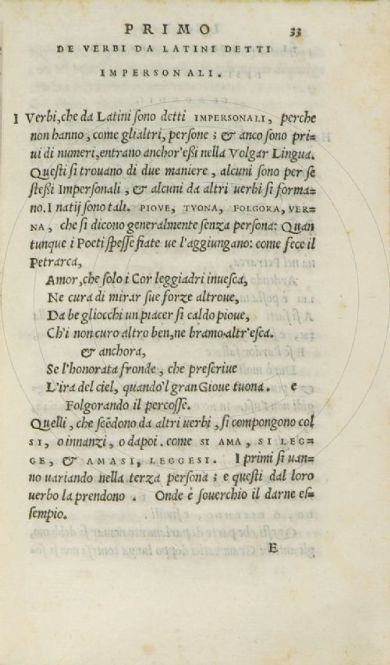 PRIMO 33
DE VERBI DA LATINI DETTI
IMPERSONALI.
I Verbi, che da Latini sono detti IMPERSONALI, perche
non hanno, come glialtri, persone; & anco sono pri=
ui di numeri, entrano anchor'eßi nella Volgar Lingua.
Questi si trouano di due maniere, alcuni sono per se
steßi Impersonali, & alcuni da altri uerbi si forma=
no. I natij sono tali. PIOVE, TVONA, FOLGORA, VER=
NA, che si dicono generalmente senza persona: Quan
tunque i Poeti spesse fiate ue l'aggiungano: come fece il
Petrarca,
Amor, che solo i Cor leggiadri inuesca,
Ne cura di mirar sue forze altroue,
Da be gliocchi un piacer si caldo pioue,
Ch'i non curo altro ben, ne bramo altr'esca.
& anchora,
Se l'honorata fronde, che prescriue
L'ira del ciel, quando'l gran Gioue tuona. e
Folgorando il percosse.
Quelli, che scēdono da altri uerbi, si compongono col
SI, o innanzi, o dapoi. come SI AMA, SI LEG=
GE, & AMASI, LEGGESI. I primi si uan=
no uariando nella terza persona; e questi dal loro
uerbo la prendono. Onde è souerchio il darne es=
sempio.
E